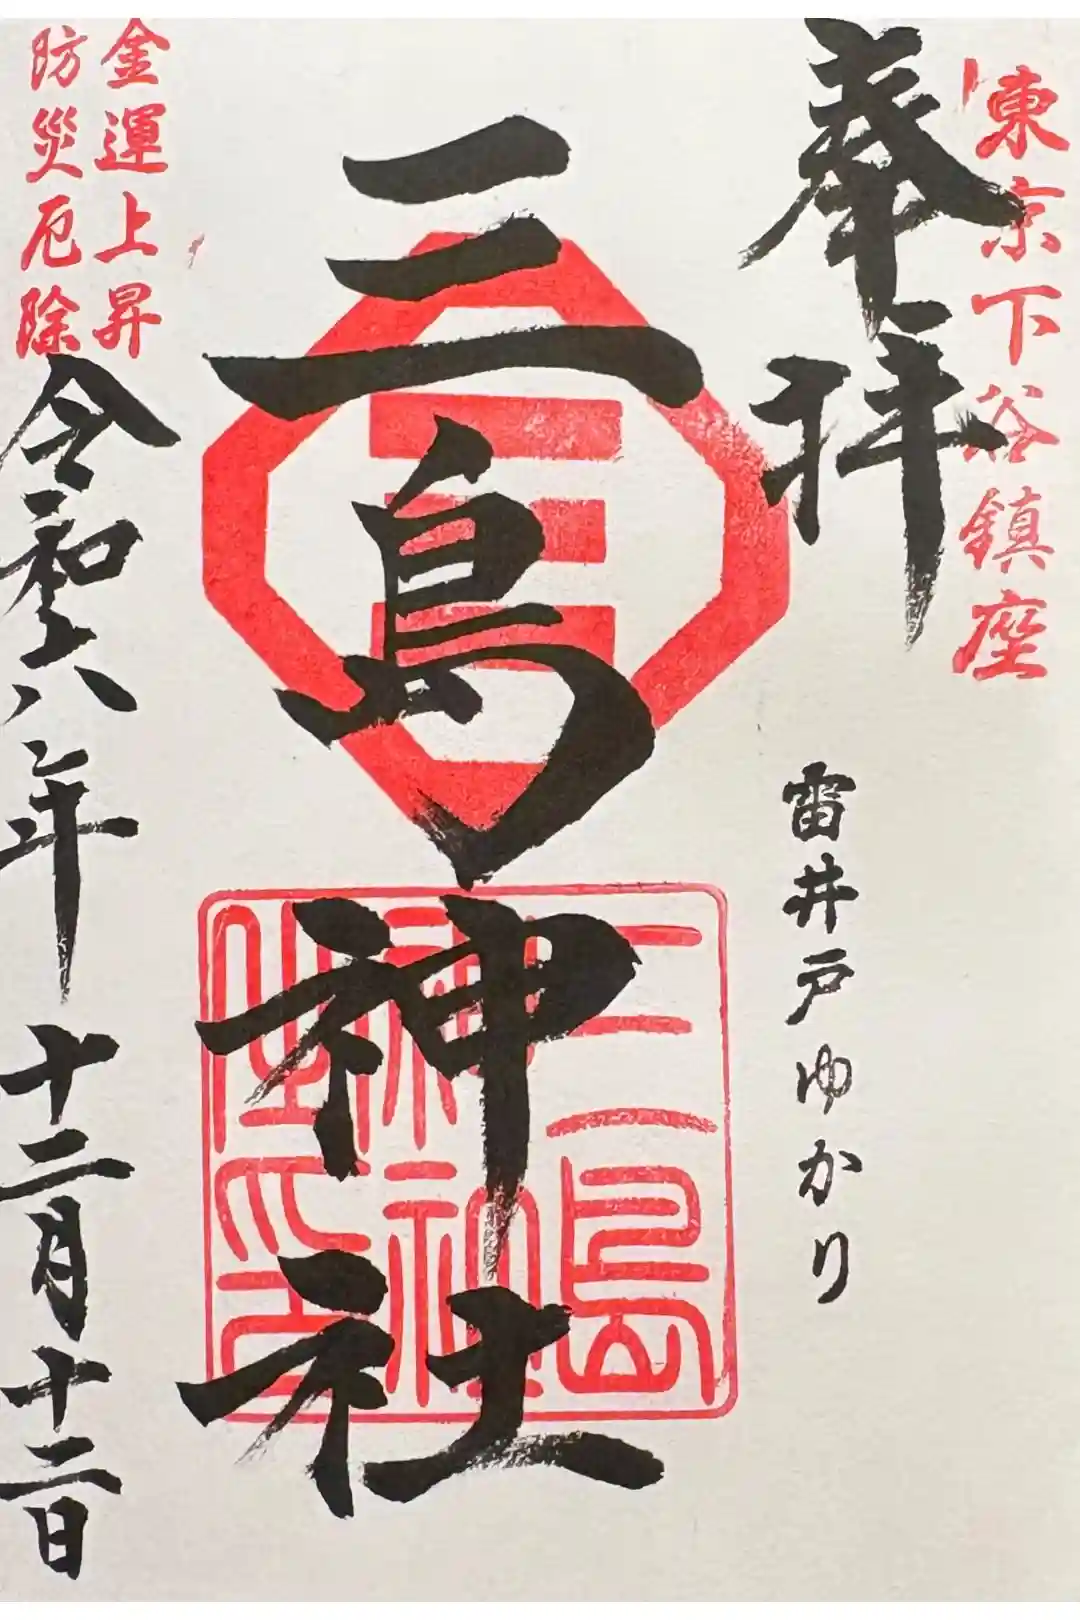 東京下谷鎮座
奉拝
雷井戸ゆかり
三島神社
三島
神社
之印
金運上昇
防災厄除
令和六年十二月十二日